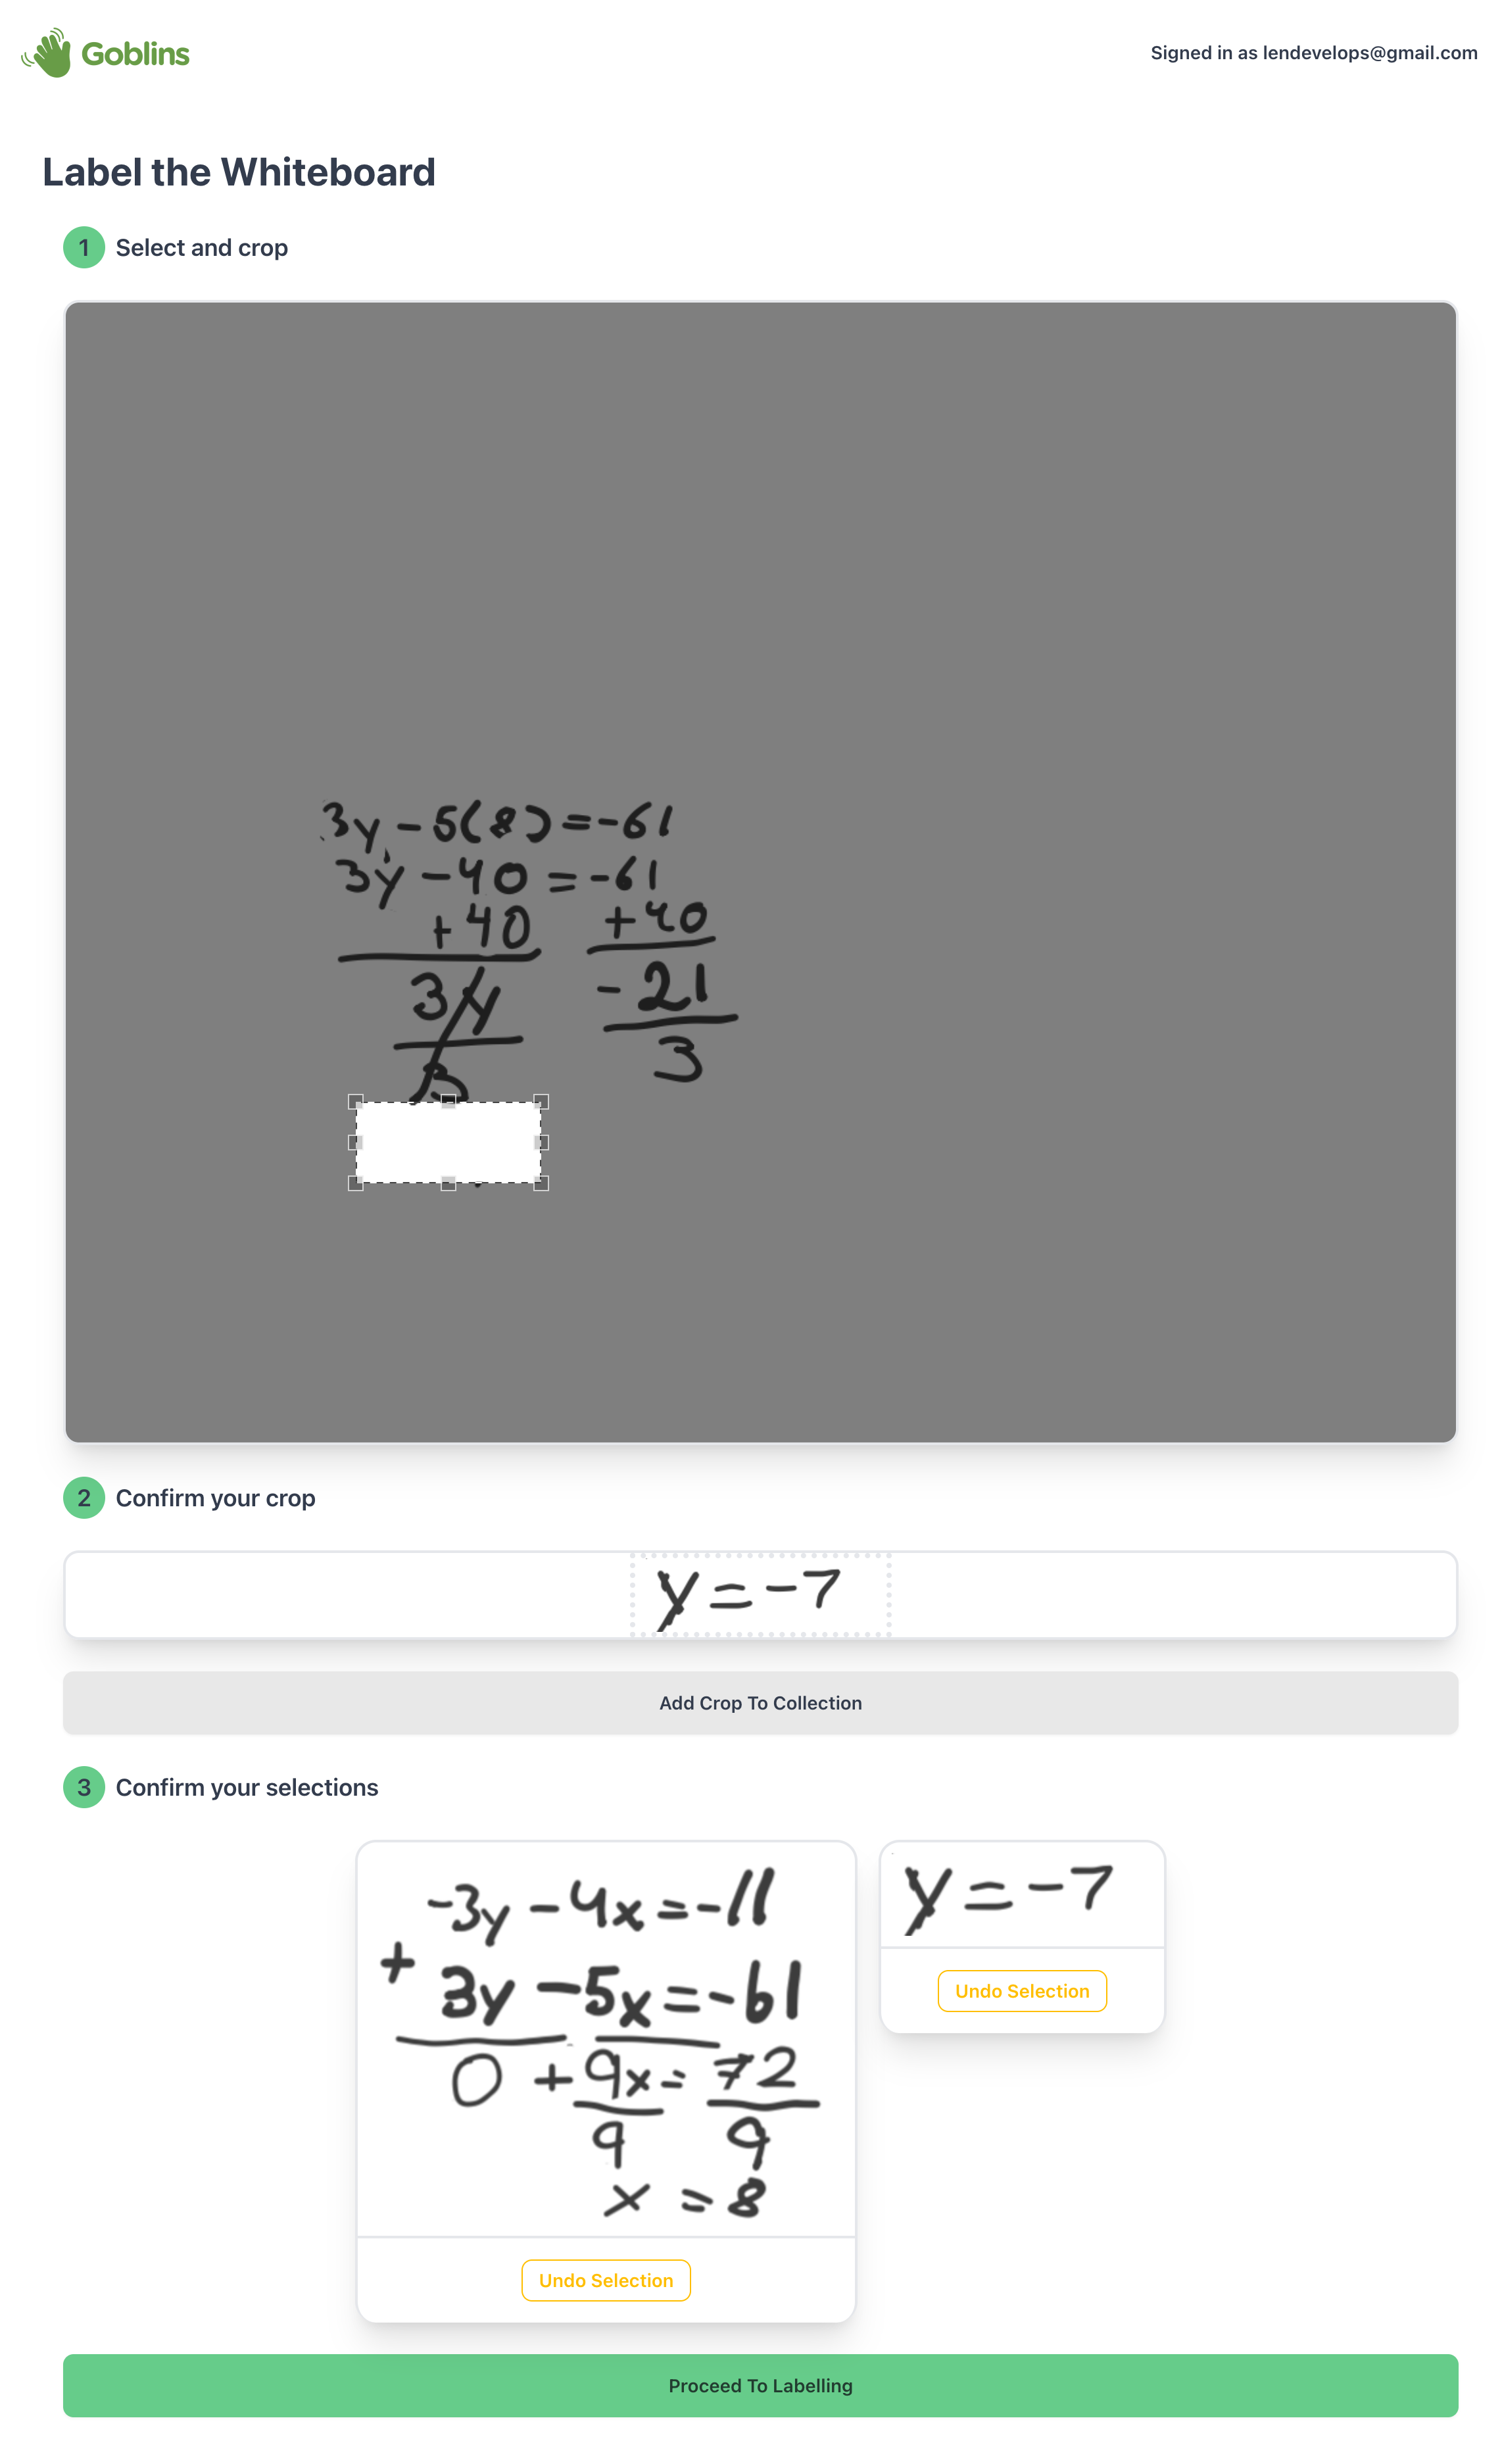 Goblins
Signed in as lendevelops@gmail.com
Label the Whiteboard
1 Select and crop
3y - 5(8) = -61
3y - 40 = -61
+ 40 + 40
3y - 21
3 3
2 Confirm your crop
y = -7
Add Crop To Collection
3 Confirm your selections
-3y - 4x = -11
+ 3y - 5x = -61
0 + 9x = 72
9 9
x = 8
Undo Selection
y = -7
Undo Selection
Proceed To Labelling